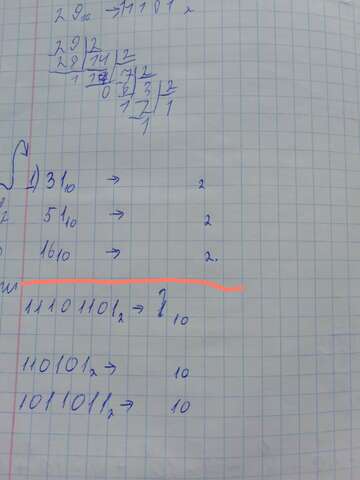 29₁₀ → 11101 ₂
29 | 2
28 | 14 | 2
1 14 | 7 | 2
0 6 | 3 | 2
1 2 | 1
1
1) 31₁₀ → ₂
51₁₀ → ₂
16₁₀ → ₂.
11101101₂ → ?₁₀
110101₂ → ₁₀
1011011₂ → ₁₀